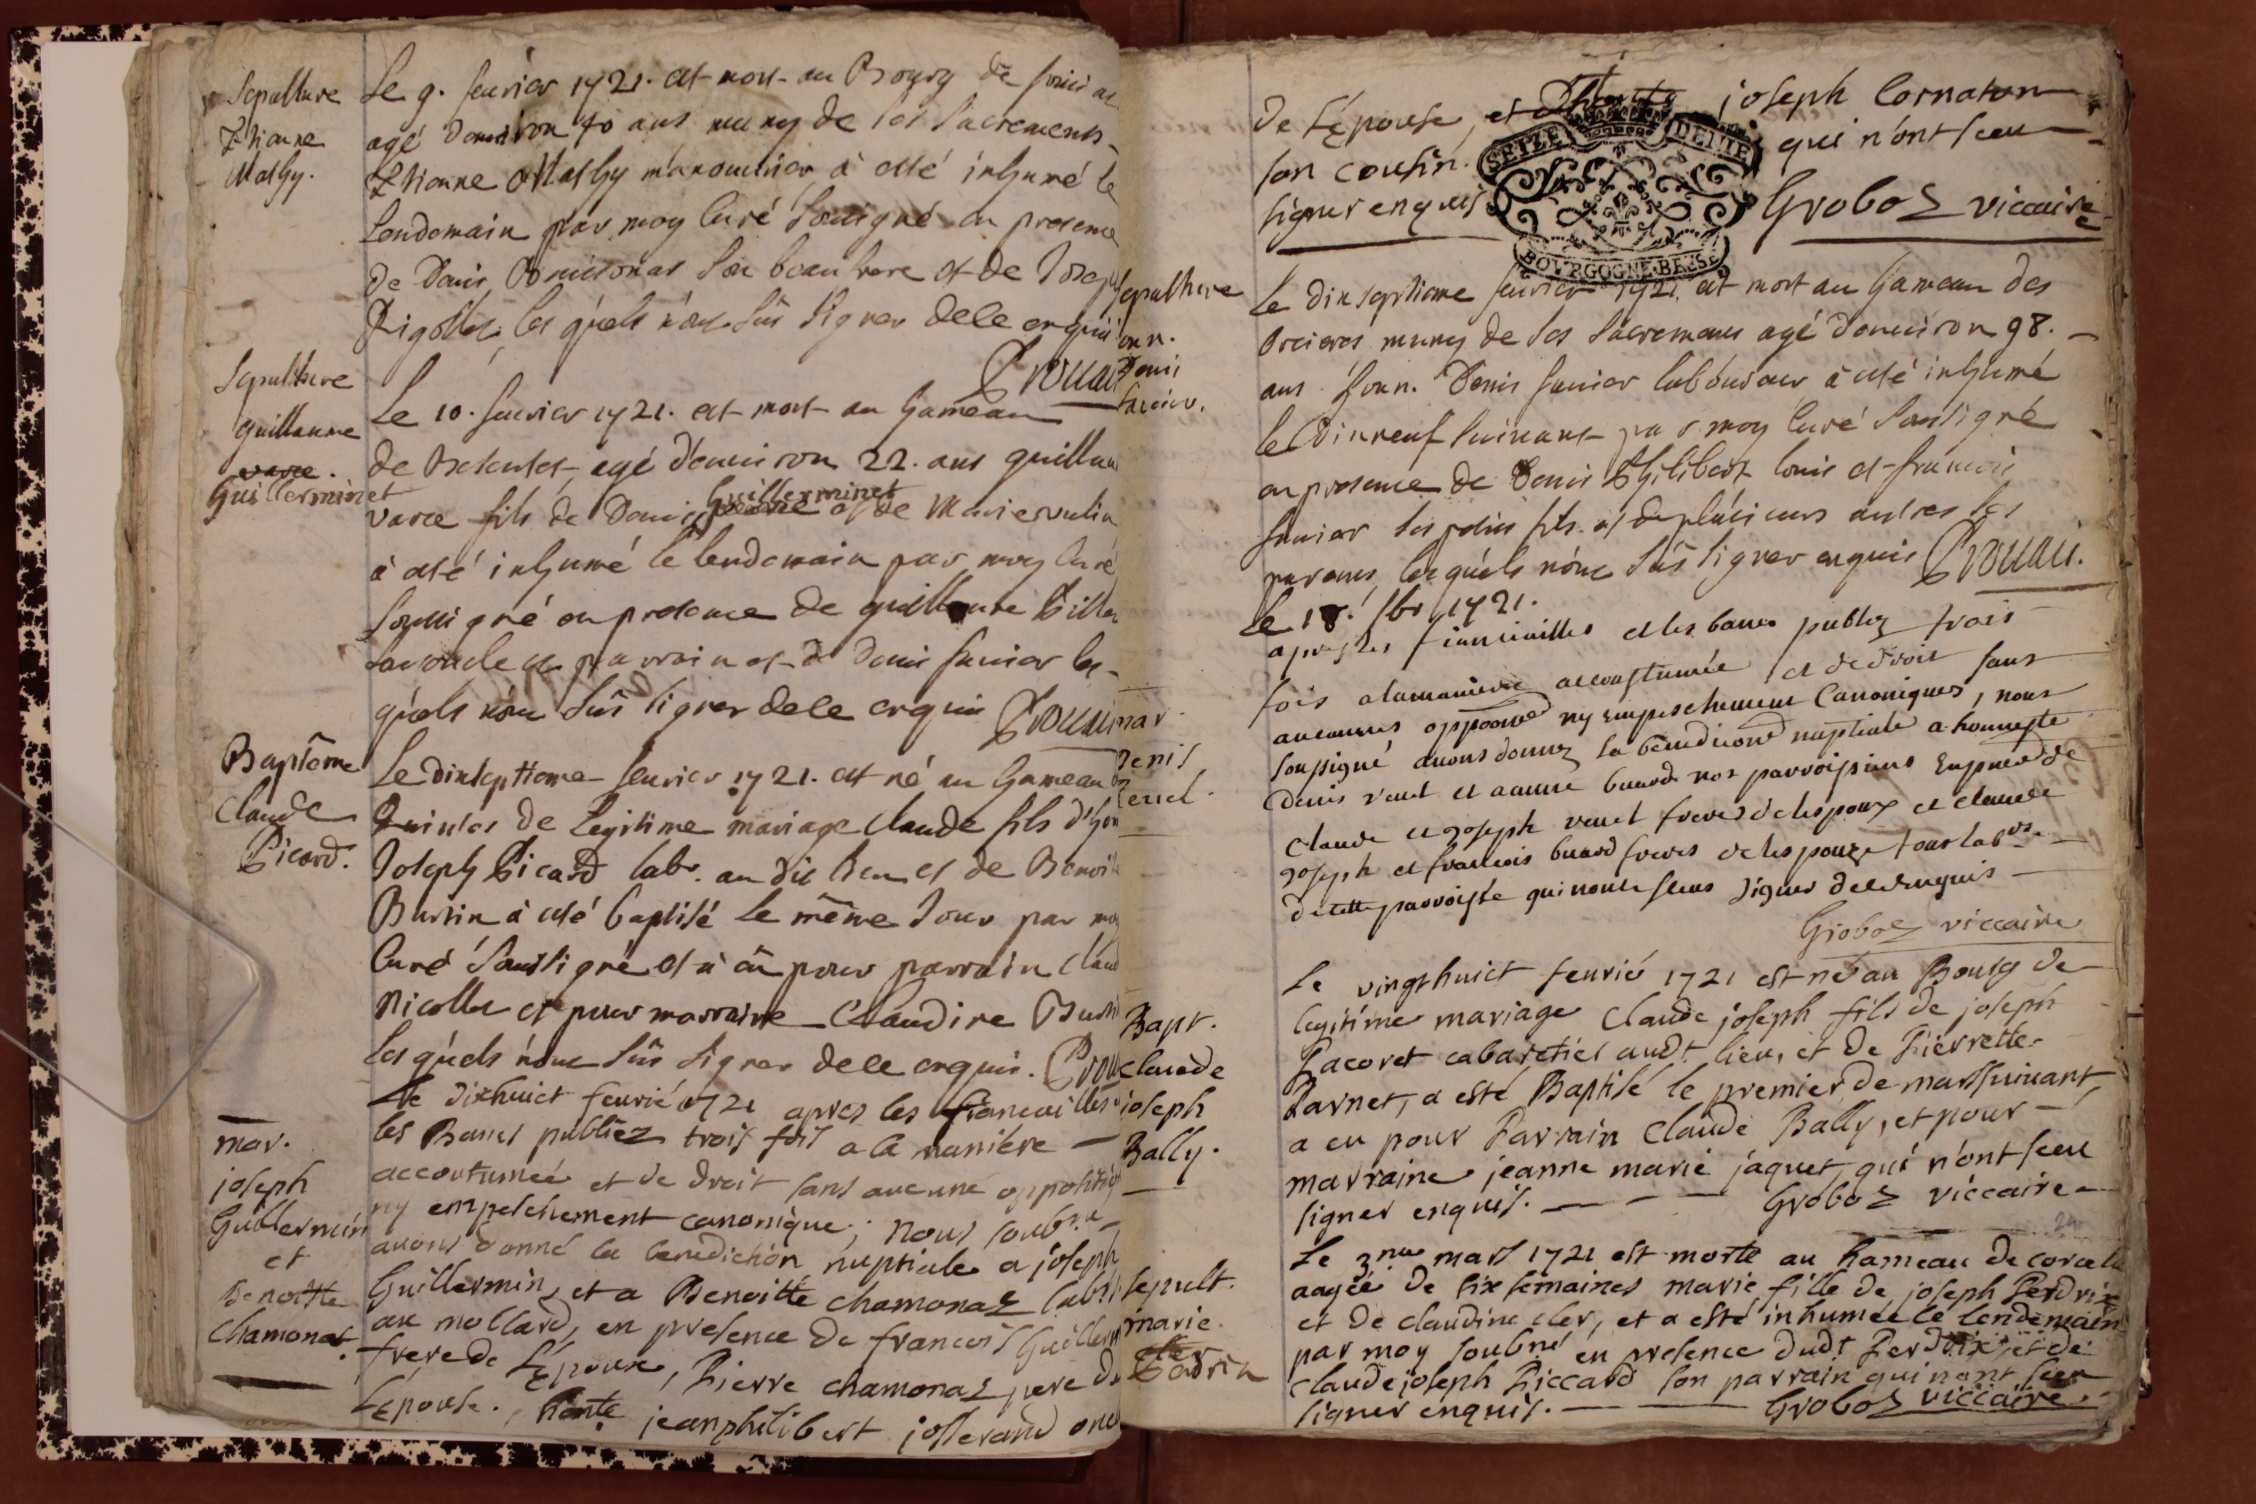 Sepulture
Ethienne
Mathy.
Le 9. feurier 1721. est mort au Bourg de
agé denuiron 40 ans muny de ses sacremens
Ethienne Mathy manouurier à esté inhumé le
Lendemain par moy Curé Soussigné en presence
de Denis son beau frere et de Josep
Rigollet les quels n'ont sûs signer de ce enquis
Sepulture
guillaume
varce.
Guillerminet
Le 10. feurier 1721. est mort au hameau
de agé d'enuiron 22. ans guillau
varce fils de Denis Guillerminet et de Marie
à esté inhumé le lendemain par moy Curé
soussigné en presence de guillaume
parrain et de Denis feurier les-
quels n'ont sûs signer de ce enquis
Baptême
Claude
Picard.
Le dixseptieme feurier 1721. est né au hameau
de legitime mariage Claude fils d'hon
Joseph Picard labr. au dit lieu et de Benoite
Burtin à esté baptisé le même Jour par moy
Curé soussigné et à eû pour parrain Claud
Nicollet et pour marraine Claudine
les quels n'ont sûs signer de ce enquis.
mar.
joseph
Guillermin
et
Benoitte
chamonat.
Le dixhuict feurié 1721 apres les fiancailles
les Bancs publiéz trois fois a la maniere
accoutumée et de droit sans aucune oppositio
ny empeschement canonique; nous soub.né
auons donné la benediction nuptiale a joseph
Guillermin, et a Benoitte chamonaz
au mollard, en presence de francois Guillerm
frere de L'Epoux, Pierre chamonaz pere de
L'Epouse. jeanphilibert josserand oncl
de L'Epouse, et joseph Cornaton
son cousin. qui n'ont sceu
signer enquis Groboz viccaire
SEIZE DENIE
BOVRGOGNE BRESSE
Sepulture
Denis
feurier.
Le dixseptieme feurier 1721. est mort au hameau des
Orcieres muny de ses sacremens agé denuiron 98.
ans Denis feurier laboureur à esté inhumé
le dixneuf suiuant par moy Curé soussigné
en presence de Denis Philibert Louis et francois
feurier ses petits fils et de plusieurs autres ses
parens, lesquels n'ont sûs signer enquis
mar.
Denis
venet.
Le 18. fbr 1721.
apres les fiancailles et les bancs publez trois
fois a la maniere accoustumée et de droit sans
aucunes oppoonns ny empeschement Canoniques, nous
soussigné auons donnez la benediction nuptiale a honneste
Denis venet et buard nos parroissiens En pnce de
Claude et joseph venet freres de lespoux et claude
joseph et francois buard freres de lespouze tous labrs
de cette parroisse qui nont sceus signer de ce enquis
Groboz viccaire
Bapt.
claude
joseph
Bally.
Le vingthuict feurié 1721 est né au Bourg de
legitime mariage Claude joseph fils de joseph
Pacoret cabaretier audt. lieu, et de Pierrette
Parnet, a esté Baptisé le premier de mars suiuant,
a eu pour Parrain Claude Bally, et pour
marraine jeanne marie jaquet, qui n'ont sceu
signer enquis. Groboz viccaire
sepult.
marie
Perdrix
Le 3me mars 1721 est morte au hameau de
aagée de six semaines marie fille de joseph Perdrix
et de claudine cler, et a esté inhumée le lendemain
par moy soubné en presence dudt Perdrix, et de
Claude joseph Piccard son parrain qui nont sceu
signer enquis. Groboz viccaire